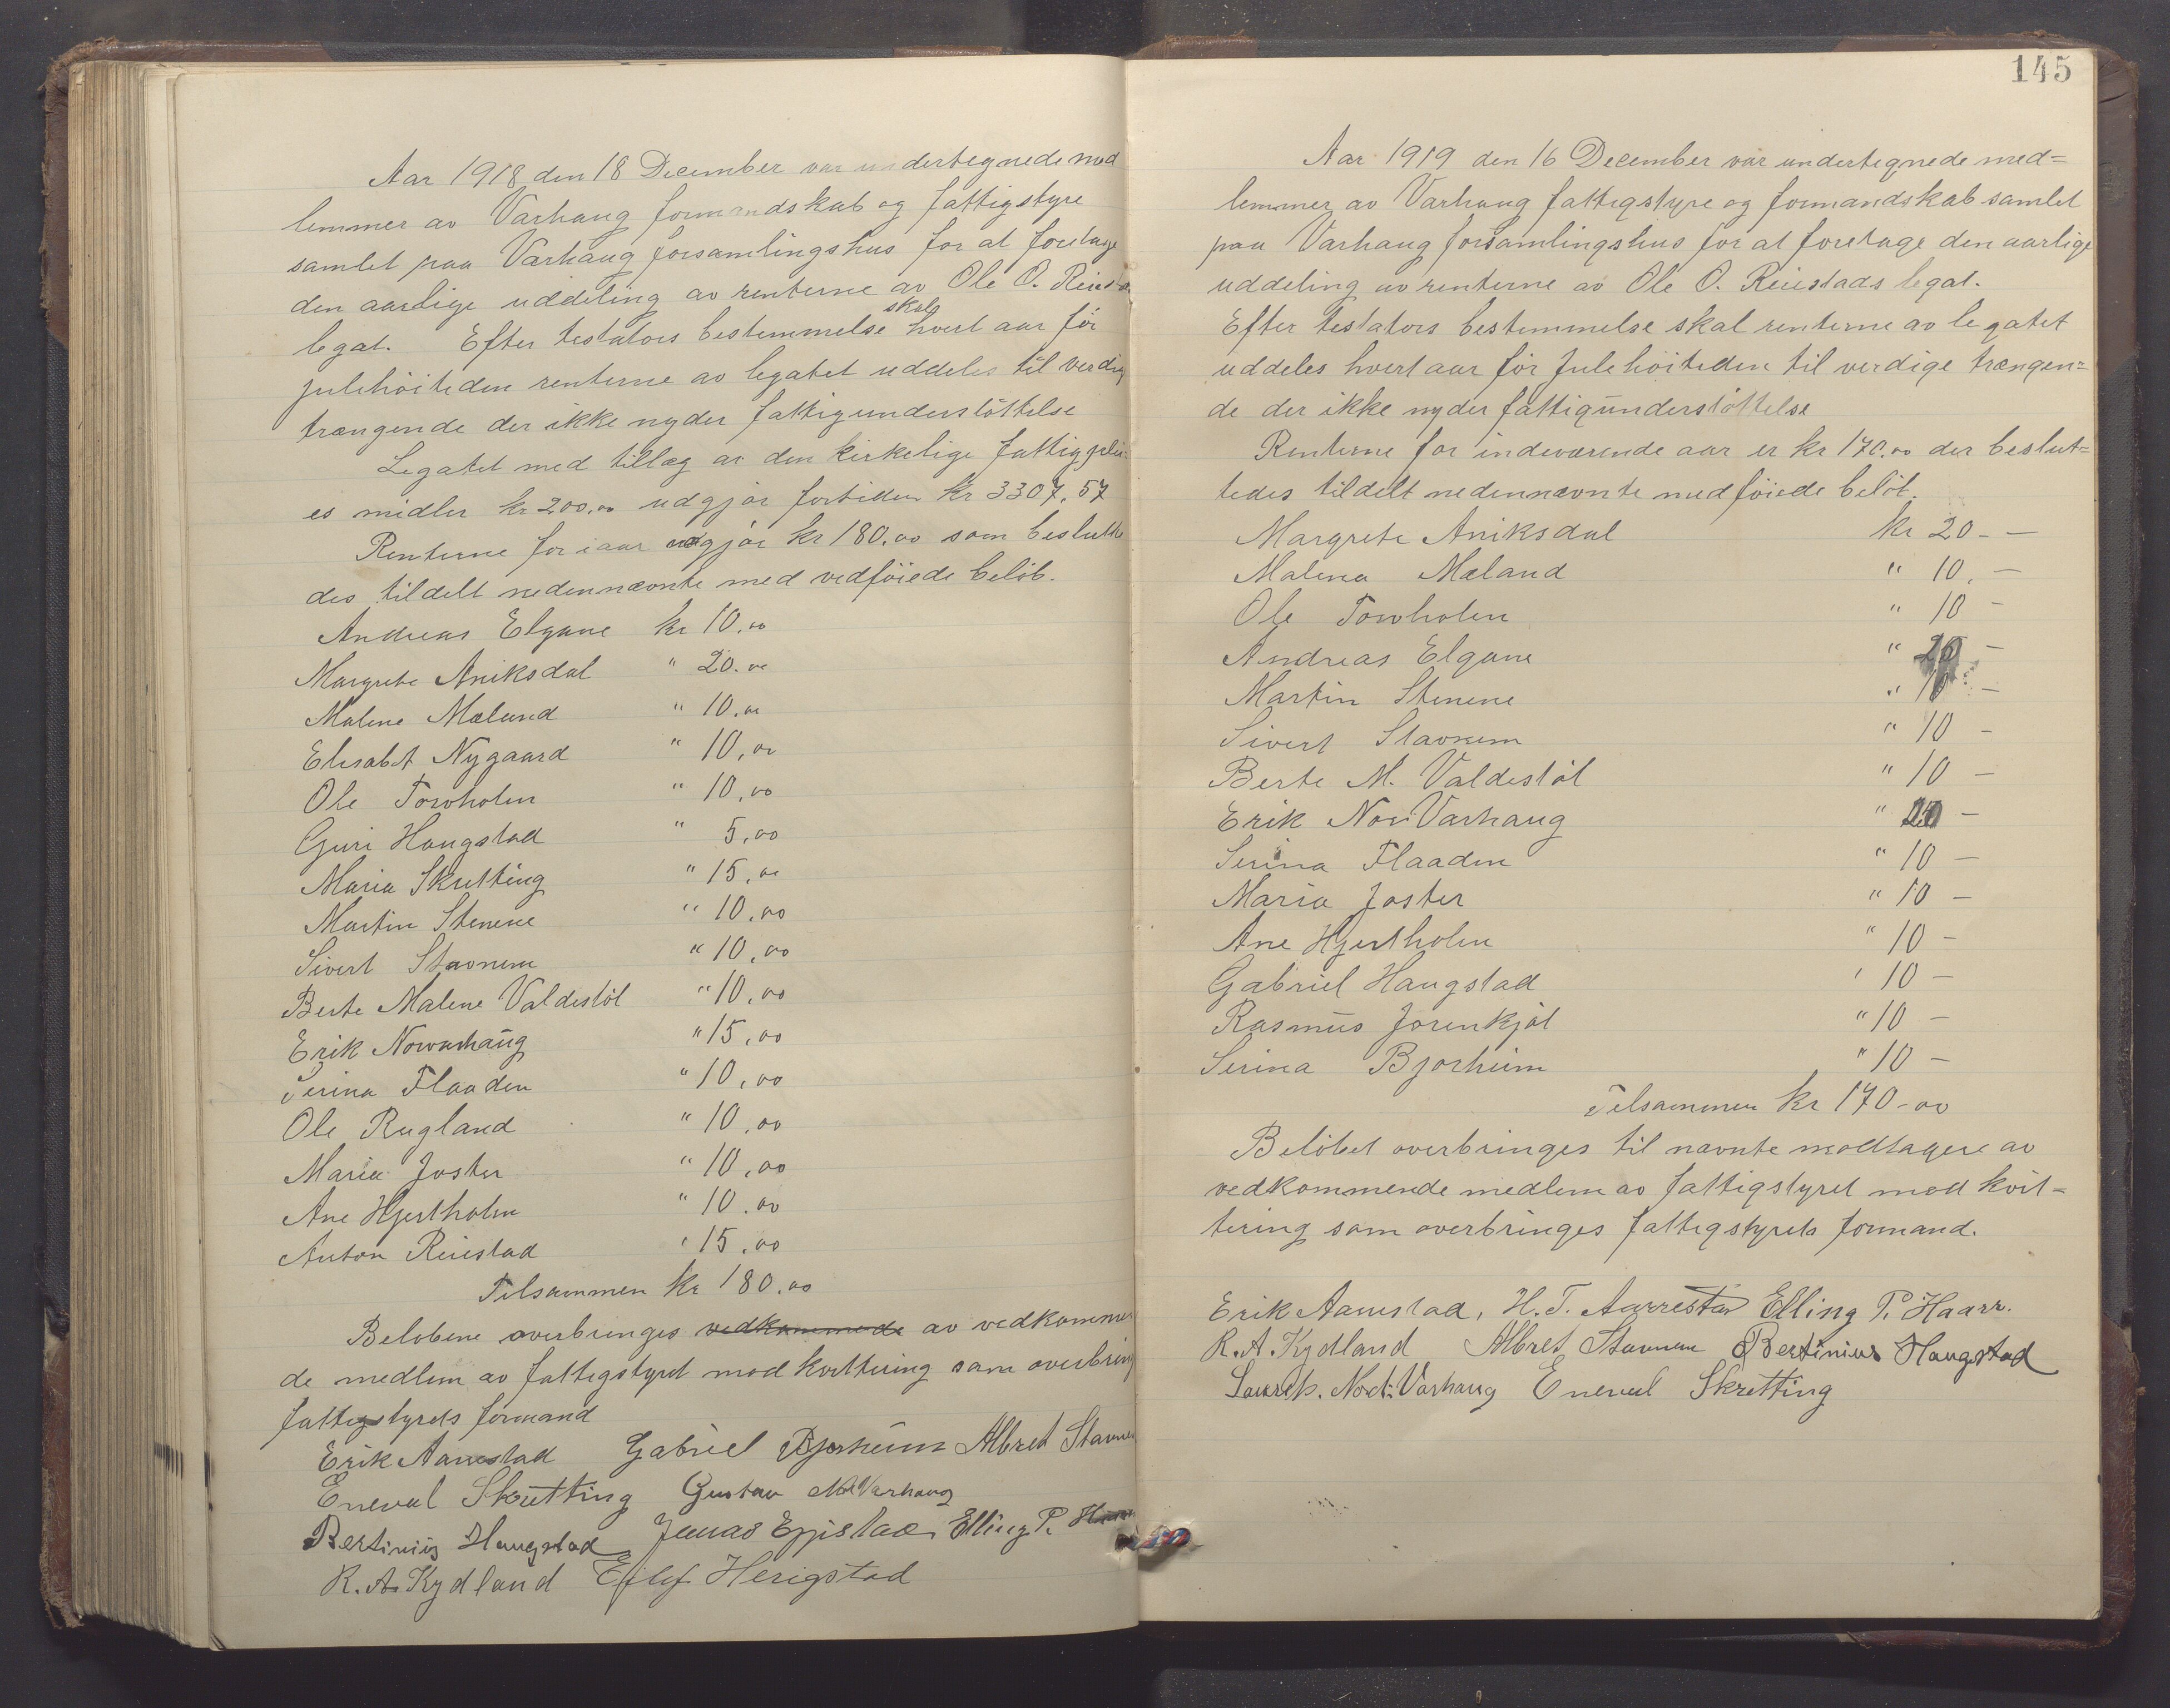 Aar 1918 den 18 December var undertegnede med
lemmer av Varhaug formandskab og fattigstyre
samlet paa Varhaug forsamlingshus for at foretage
den aarlige uddeling av renterne av Ole O. Reiesta
legat. Efter testators bestemmelse skal hvert aar för
julehöiteden renterne av legatet uddeles til verdig
trængende der ikke nyder fattigunderstöttelse
Legatet med tillæg av den kirkelige fattigplei-
es midler kr 200,00 udgjör fortiden kr 3307,57
Renterne for iaar udgjör kr 180,00 som beslutte
des tildelt nedennævnte med vedföiede belöb.
Andreas Elgane kr 10,00
Margrete Aniksdal " 20.00
Malene Mæland " 10.00
Elisabet Nygaard " 10,00
Ole Torvholen " 10,00
Guri Haugstad " 5,00
Maria Skretting " 15,00
Martin Stenene " 10,00
Sivert Stavnem " 10,00
Berte Malene Valdestöl " 10,00
Erik Norvarhaug " 15,00
Serina Flaaden " 10,00
Ole Rugland " 10,00
Maria Joster " 10,00
Ane Hjertholm " 10.00
Anton Reiestad " 15,00
Tilsammen kr 180.00
Belöbene overbringes vedkommede av vedkommen
de medlem av fattigstyret mod kvittering som overbring
fattigstyrets formand
Erik Aanestad Gabriel Bjorheim Albret Stavne
Eneval Skretting Gustav N Varhaug
Bertinius Haugstad Jonas Eggistad Elling P. Haar
R. A. Kydland Eilef Herigstad
145
Aar 1919 den 16 December var undertegnede med=
lemmer av Varhaug fattigstyre og formandskab samlet
paa Varhaug forsamlingshus for at foretage den aarlige
uddeling av renterne av Ole O. Reiestads legat.
Efter testators bestemmelse skal renterne av legatet
uddeles hvert aar för Julehöiteden til verdige trængen=
de der ikke nyder fattigunderstöttelse
Renterne for indeværende aar er kr 170.00 der beslut=
tedes tildelt nedennævnte medföiede belöb.
Margrete Aniksdal kr 20 - —
Malena Mæland " 10. —
Ole Torvholen " 10 —
Andreas Elgane " 20 —
Martin Stenene " 10 —
Sivert Stavnem " 10 —
Berte M. Valdestöl " 10 —
Erik Nor Varhaug " 20 —
Serina Flaaden " 10 —
Maria Joster " 10 —
Ane Hjertholm " 10 —
Gabriel Haugstad " 10 —
Rasmus Jorenkjöl " 10 —
Serina Bjorheim " 10 —
Tilsammen kr 170-00
Belöbet overbringes til nævnte modtagere av
vedkommende medlem av fattigstyret mod kvit=
tering som overbringes fattigstyrets formand.
Erik Aanestad, H. T. Aarrestad Elling P. Haarr.
R. A. Kydland Albret Stavnem Bertinius Haugstad
Nord: Varhaug Eneval Skretting